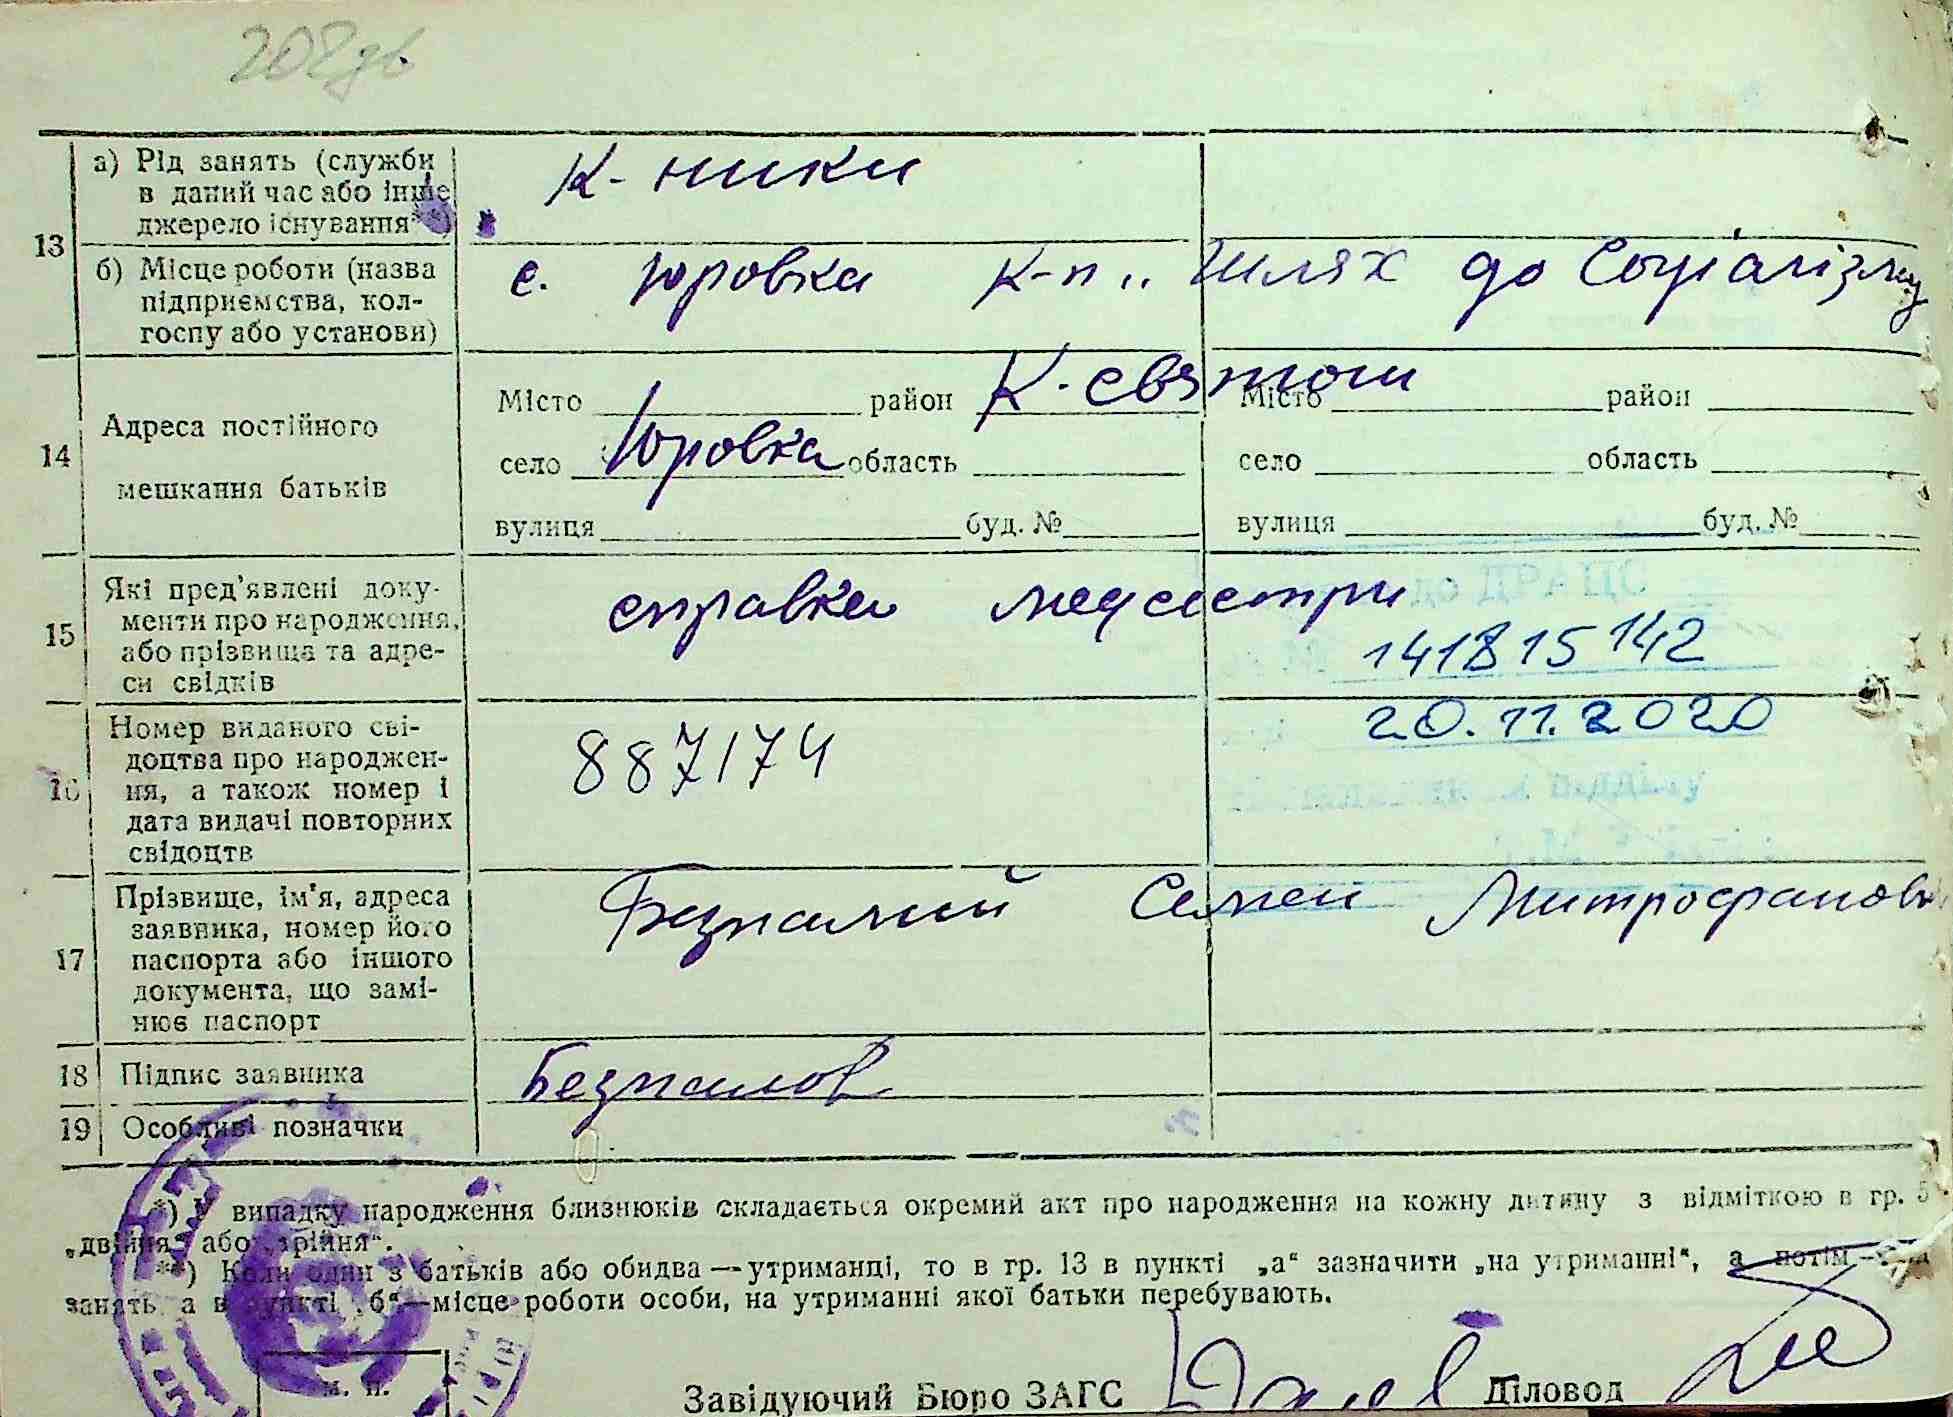 208зв.
13
а) Рід занять (служби
в даний час або інше
джерело існування**)
к-ники
б) Місце роботи (назва
підприємства, кол-
госпу або установи)
с. Юровка к-п „Шлях до Соціалізму
14
Адреса постійного
мешкання батьків
Місто район К-святош
село Юровка область
вулиця буд. №
Місто район
село область
вулиця буд. №
15
Які пред'явлені доку-
менти про народження,
або прізвища та адре-
си свідків
справка медсестри
до ДРАЦС
№ 141815142
20.11.2020
відділу
16
Номер виданого сві-
доцтва про народжен-
ня, а також номер і
дата видачі повторних
свідоцтв
887174
17
Прізвище, ім'я, адреса
заявника, номер його
паспорта або іншого
документа, що замі-
нює паспорт
Безпалий Семен Митрофанов
18 Підпис заявника
Безпалов
19 Особливі позначки
*) У випадку народження близнюків складається окремий акт про народження на кожну дитину з відміткою в гр. 5
„двійня“ або „трійня“.
**) Коли один з батьків або обидва—утриманці, то в гр. 13 в пункті „а“ зазначити „на утриманні“, а потім—рід
занять, а в пункті „б“—місце роботи особи, на утриманні якої батьки перебувають.
М. П.
Завідуючий Бюро ЗАГС Діловод